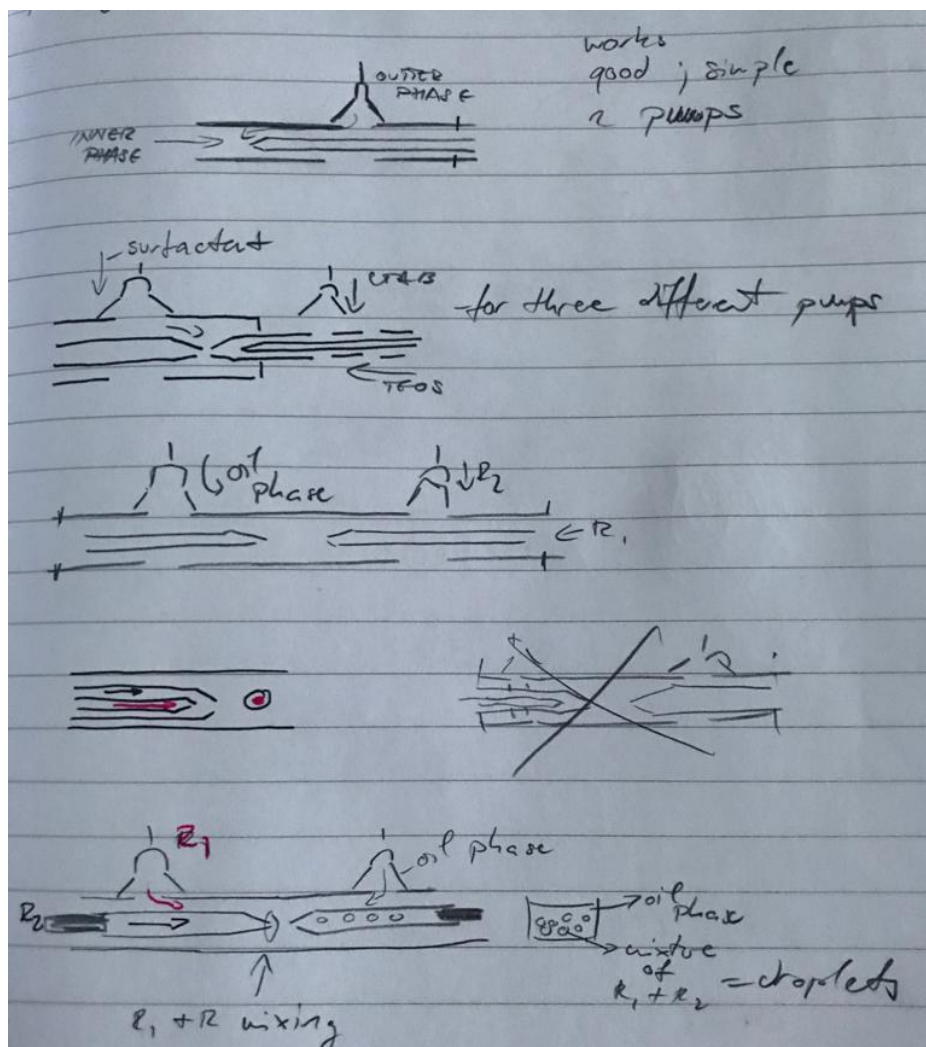 works
good ; simple
2 pumps
OUTTER
PHASE
INNER
PHASE
surfactant
CTAB
for three different pumps
TEOS
oil
phase
R2
R1
R1
oil phase
R2
oil
phase
mixture
of
R1 + R2 = droplets
R1 + R mixing